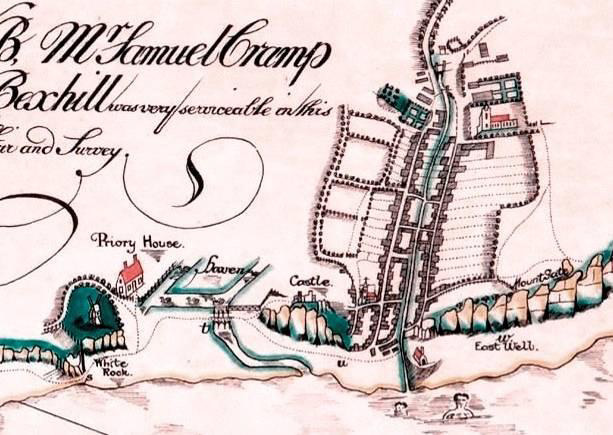 B, Mr Samuel Cramp
Bexhill was very serviceable in this
fair and Survey.
Priory House.
Haven
Castle.
Mount Gate
w
East Well.
t
u
White
Rock.
s